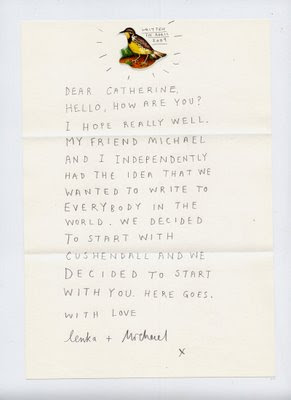 WRITTEN
1ST APRIL
2009
DEAR CATHERINE,
HELLO, HOW ARE YOU?
I HOPE REALLY WELL.
MY FRIEND MICHAEL
AND I INDEPENDENTLY
HAD THE IDEA THAT WE
WANTED TO WRITE TO
EVERYBODY IN THE
WORLD. WE DECIDED
TO START WITH
CUSHENDALL AND WE
DECIDED TO START
WITH YOU. HERE GOES.
WITH LOVE
lenka + Michael
x